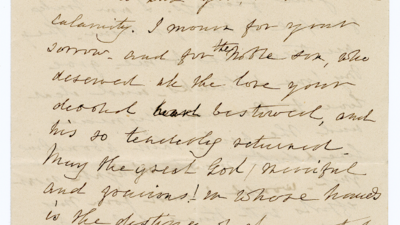 calamity. I mourn for your
sorrow - and for the noble son, who
deserved all the love your
devoted heart bestowed, and
his so tenderly returned.
May the great God, merciful
and gracious! in whose hands
is the